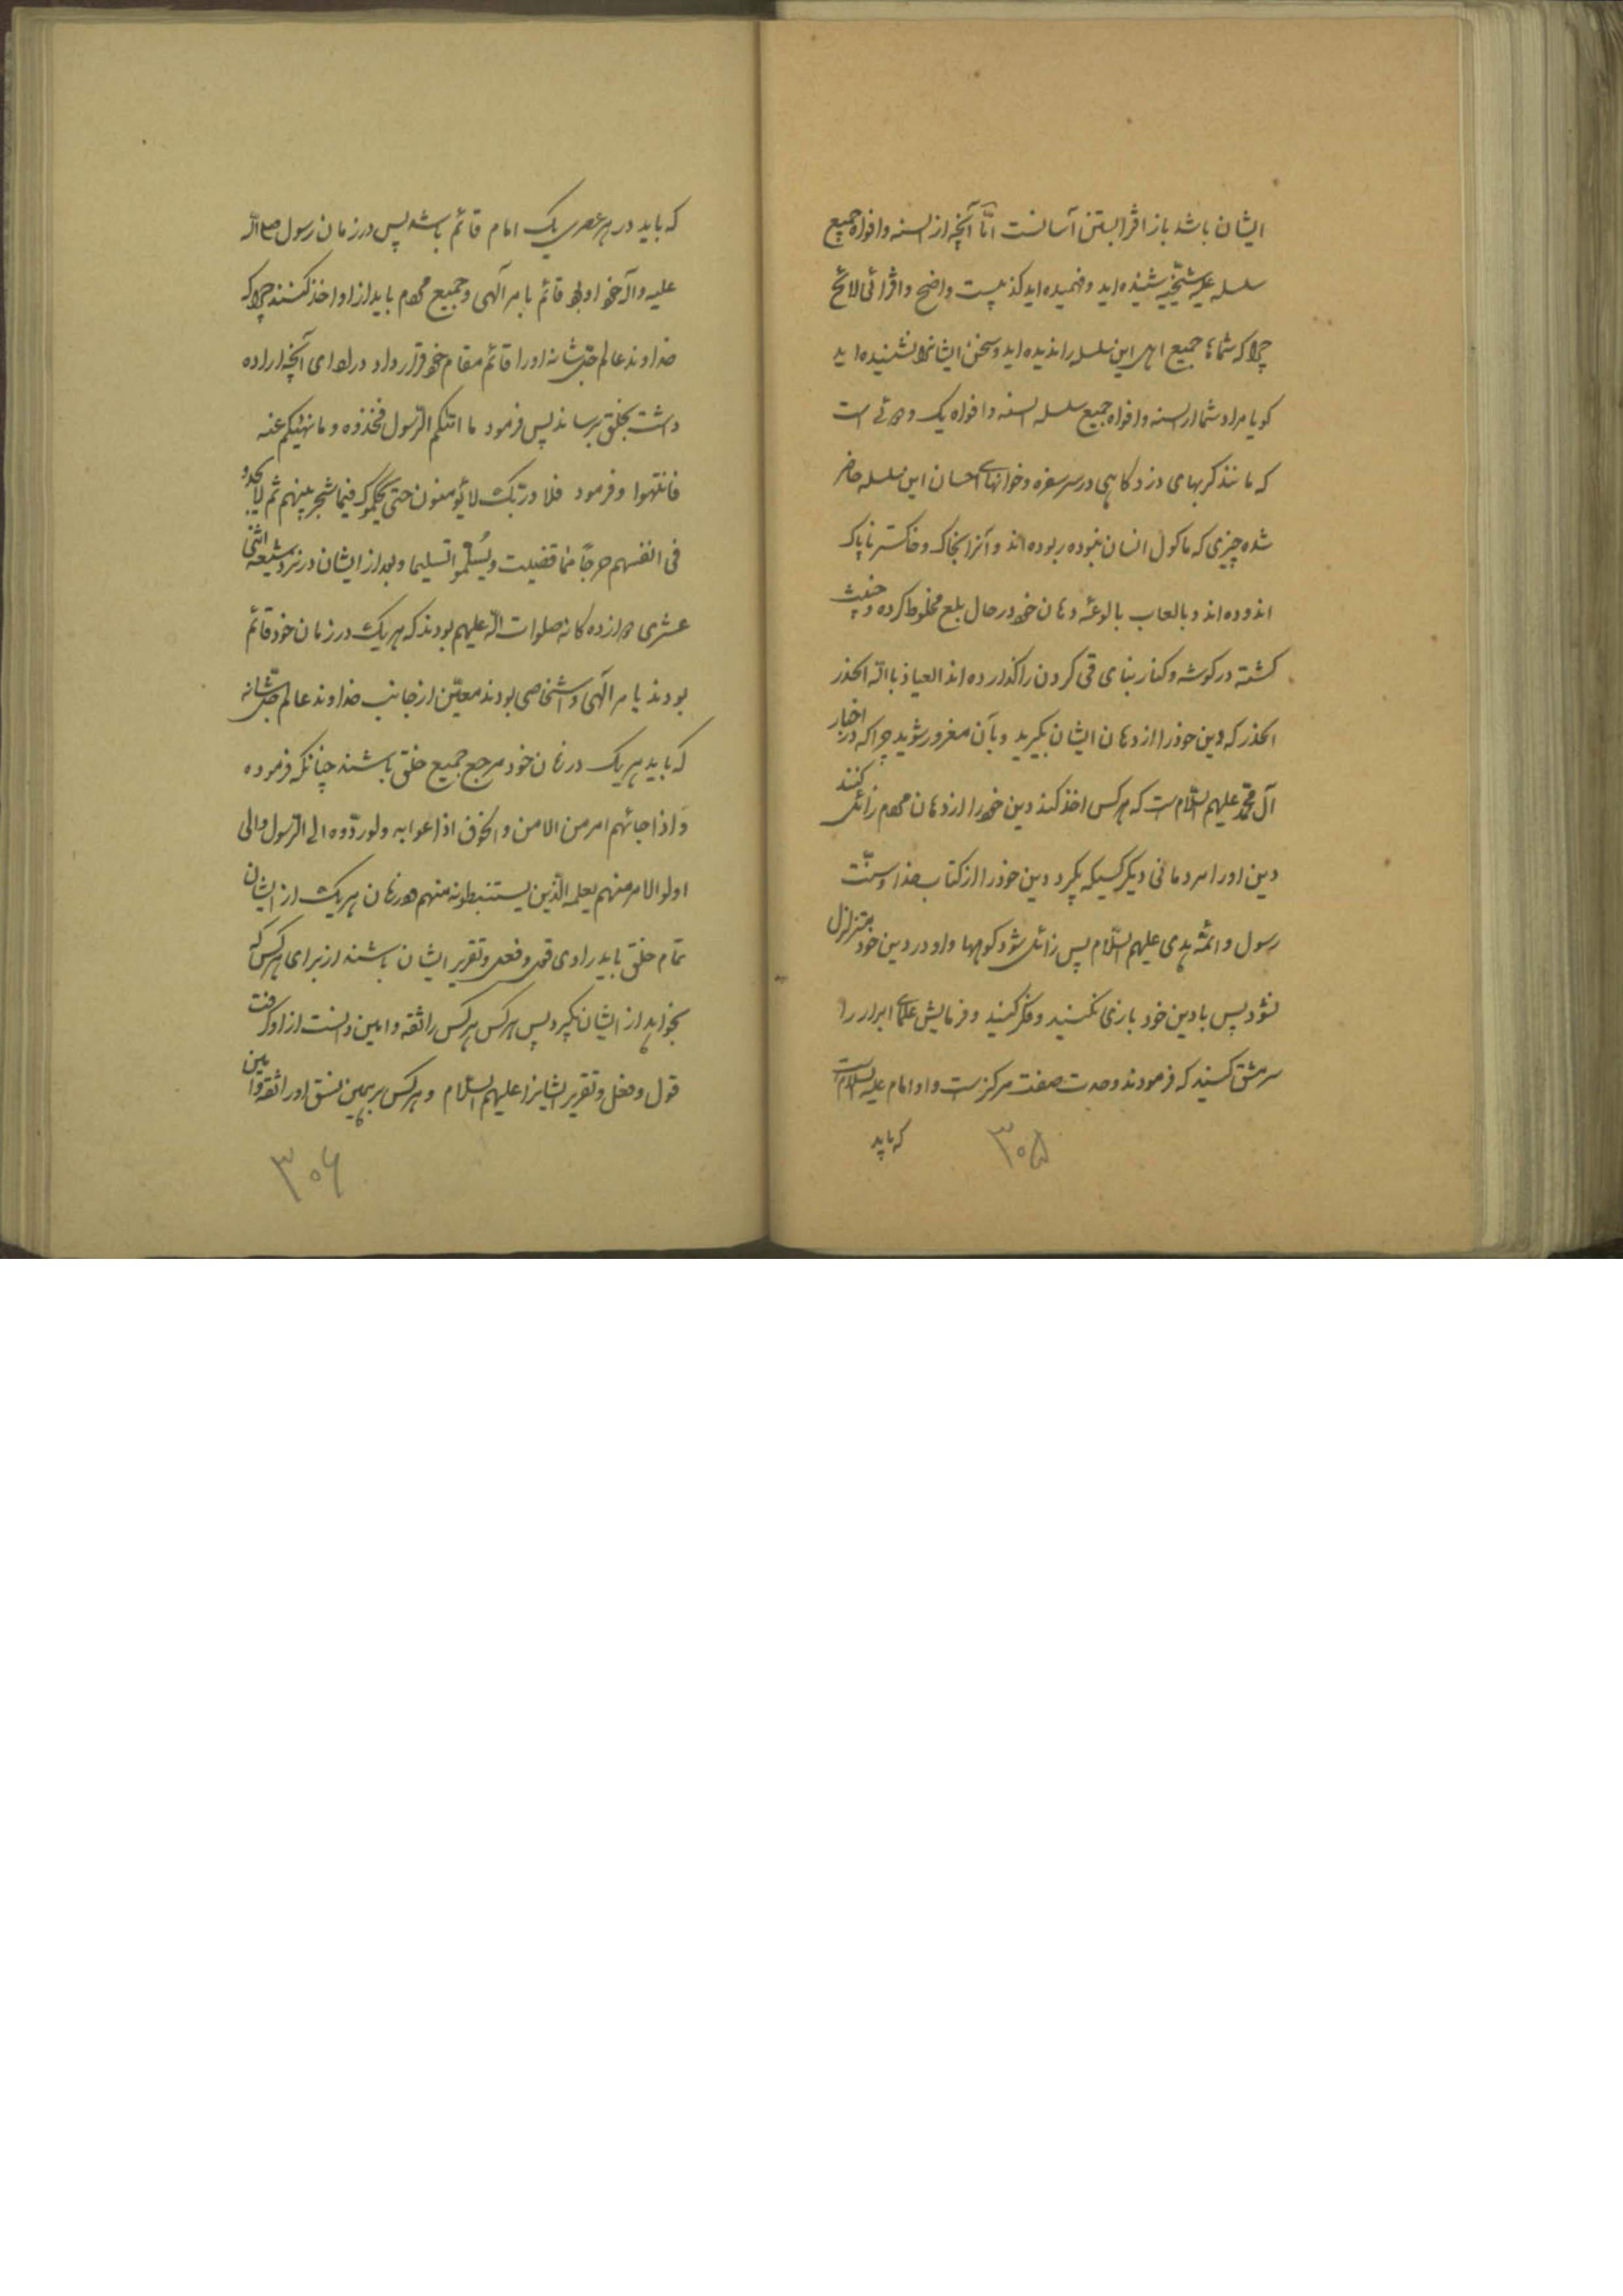 ایشان باشد باز افترا بستن آسانست امّا آنچه از السنه و افواه جمیع
سلسله علیه شیخیه شنیده اید و فهمیده اید کذبیست واضح و افترائی لائح
چرا که شماها جمیع اهل این سلسله را ندیده اید و سخن ایشانرا نشنیده اید
کویا مراد شما از السنه و افواه جمیع سلسله السنه و افواه یک و دوئی است
که مانند کربهای دزد کاهی در سر سفره و خوانهای احسان این سلسله حاضر
شده چیزی که ماکول انسان نبوده ربوده اند و آنرا بخاک و خاکستر ناپاک
اندوده اند و بالعاب بالوعهٔ دهان خود در حال بلع مخلوط کرده و خبیث
کشته در کوشه و کنار بنای قی کردن را کذارده اند العیاذ بالله الحذر
الحذر که دین خود را از دهان ایشان بکیرید و بآن مغرور شوید چرا که در اخبار
آل محمّد علیهم السّلام است که هر کس اخذ کند دین خود را از دهان مردم زائل کنند
دین او را مردمانی دیکر کسیکه بکیرد دین خود را از کتاب خدا و سنّت
رسول و ائمّه هدی علیهم السّلام پس زائل شود کوهها و او در دین خود متزلزل
نشود پس با دین خود بازی نکنید و فکر کنید و فرمایش علمای ابرار را
سرمشق کنید که فرمودند وحدت صفت مرکز است و او امام علیه السلام است
که باید
۳۰۵
که باید در هر عصری یک امام قائم باشد پس در زمان رسول صلی الله
علیه و آله خود او بود قائم بامر آلهی و جمیع مردم باید از او اخذ کنند چرا که
خداوند عالم جلّ شانه او را قائم مقام خود قرار داد در ادای آنچه اراده
داشت بخلق برساند پس فرمود ما اتیکم الرّسول فخذوه و ما نهیکم عنه
فانتهوا و فرمود فلا و ربّک لا یؤمنون حتی یحکّموک فیما شجر بینهم ثم لا یجدوا
فی انفسهم حرجاً ممّا قضیت و یُسلّموا تسلیما و بعد از ایشان در نزد شیعه اثنی
عشری دوازده کانه صلوات الله علیهم بودند که هر یک در زمان خود قائم
بودند بامر آلهی و اشخاصی بودند معیّن از جانب خداوند عالم جلّ شانه
که باید هر یک در زمان خود مرجع جمیع خلق باشند چنانکه فرموده
و اذا جائهم امر من الامن و الخوف اذاعوا به و لو ردّوه الی الرّسول و الی
اولو الامر منهم لعلمه الّذین یستنبطونه منهم و در زمان هر یک از ایشان
تمام خلق باید راوی قول و فعل و تقریر ایشان باشند از برای هر کس که
بخواهد از ایشان بکیرد پس هر کس هر کس را ثقه و امین دانست از او کرفت
قول و فعل و تقریر ایشانرا علیهم السّلام و هر کس بر همین نسق او را ثقه و امین
۳۰۶